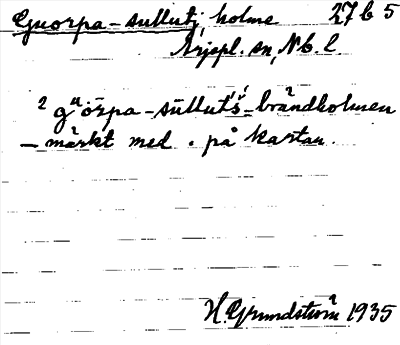 Guorpa-sullutj, holme 27 b 5
Arjepl. sn, Nb. l.
²gᵘōrpa-sūllutš́-brandholmen
– märkt med . på kartan.
H. Grundström 1935